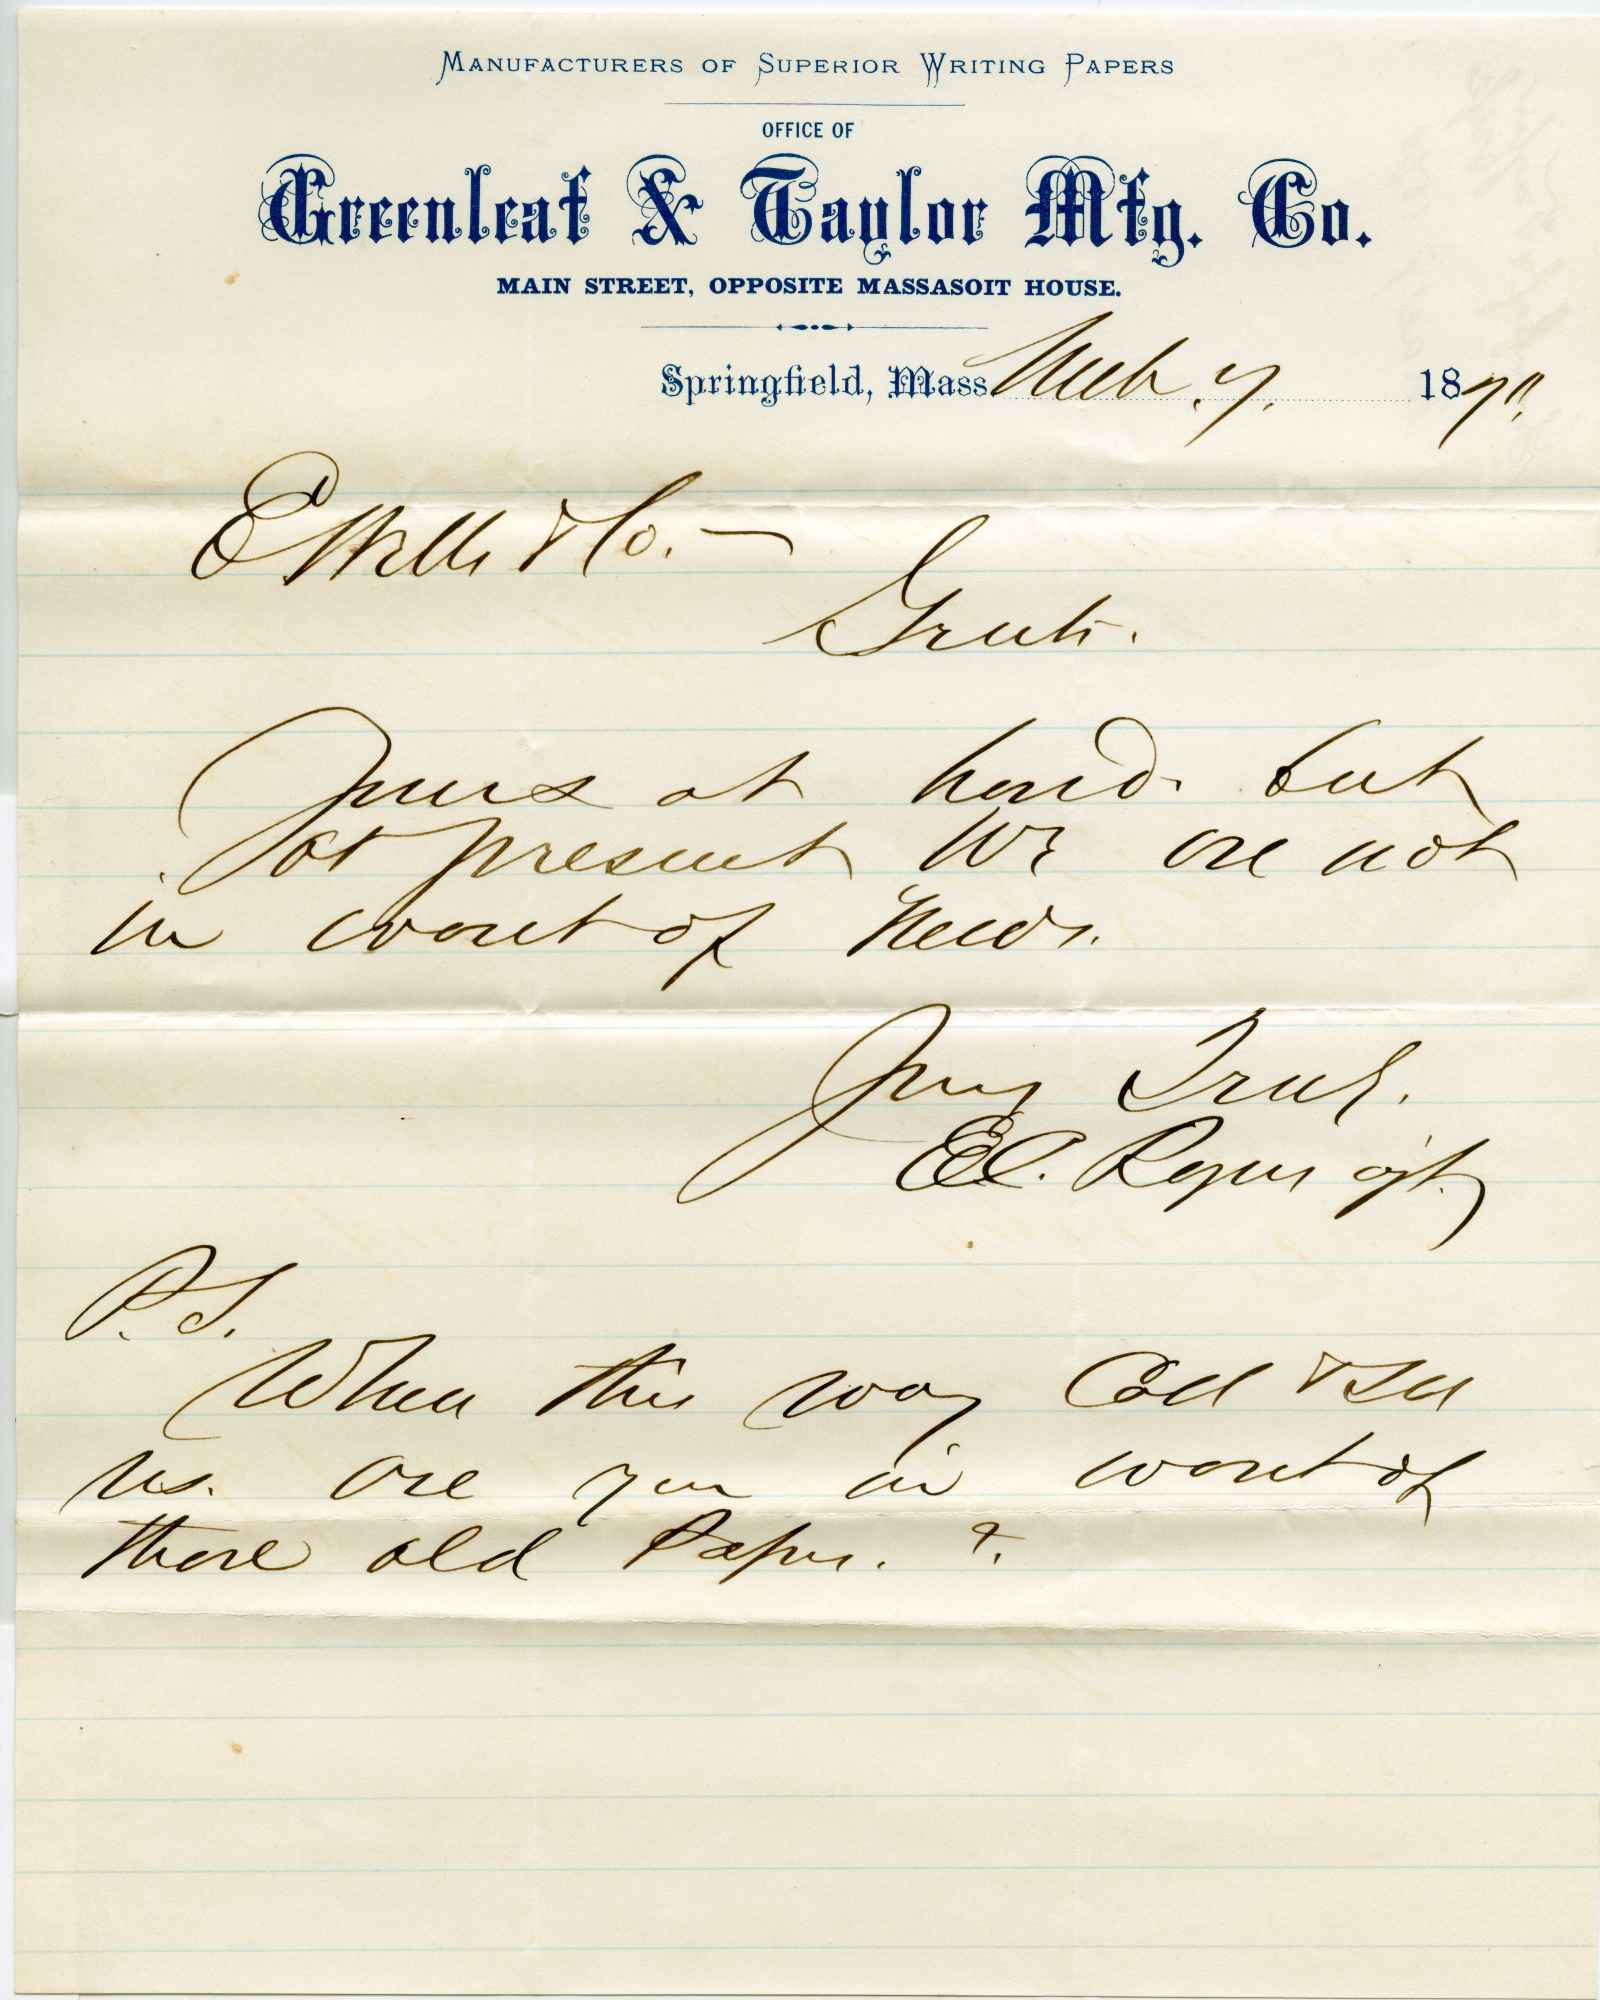 MANUFACTURERS OF SUPERIOR WRITING PAPERS
OFFICE OF
Greenleaf & Taylor Mfg. Co.
MAIN STREET, OPPOSITE MASSASOIT HOUSE.
Springfield, Mass. 7. 187
E Wells & Co. —
Gents.
Yours at hand. but
at present we are not
in want of
Yours Truly.
E.C. Rogers agt.
P.S.
When this way Call & See
us. are you in want of
those old Papers. ?